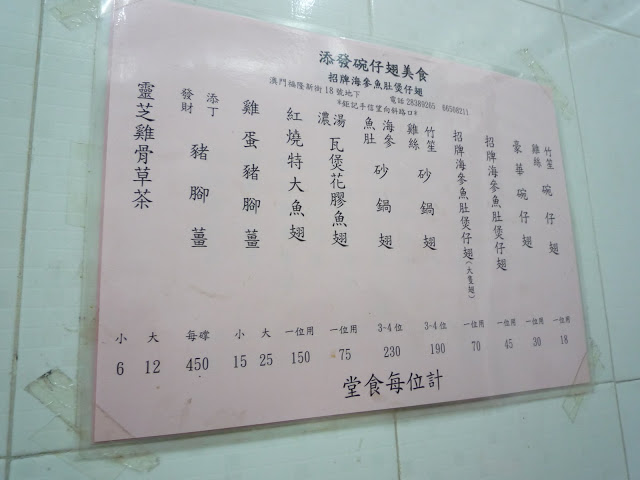 添發碗仔翅美食
招牌海參魚肚煲仔翅
澳門福隆新街18號地下 電話 28389265 66568211
*鉅記手信望向斜路口*
竹笙雞絲碗仔翅 一位用 18
豪華碗仔翅 一位用 30
招牌海參魚肚煲仔翅 一位用 45
招牌海參魚肚煲仔翅(大隻翅) 一位用 70
竹笙雞絲砂鍋翅 3~4位 190
海參魚肚砂鍋翅 3~4位 230
濃湯瓦煲花膠魚翅 一位用 75
紅燒特大魚翅 一位用 150
雞蛋豬腳薑 大 25 小 15
添丁發財豬腳薑 450
靈芝雞骨草茶 大 12 小 6
堂食每位計